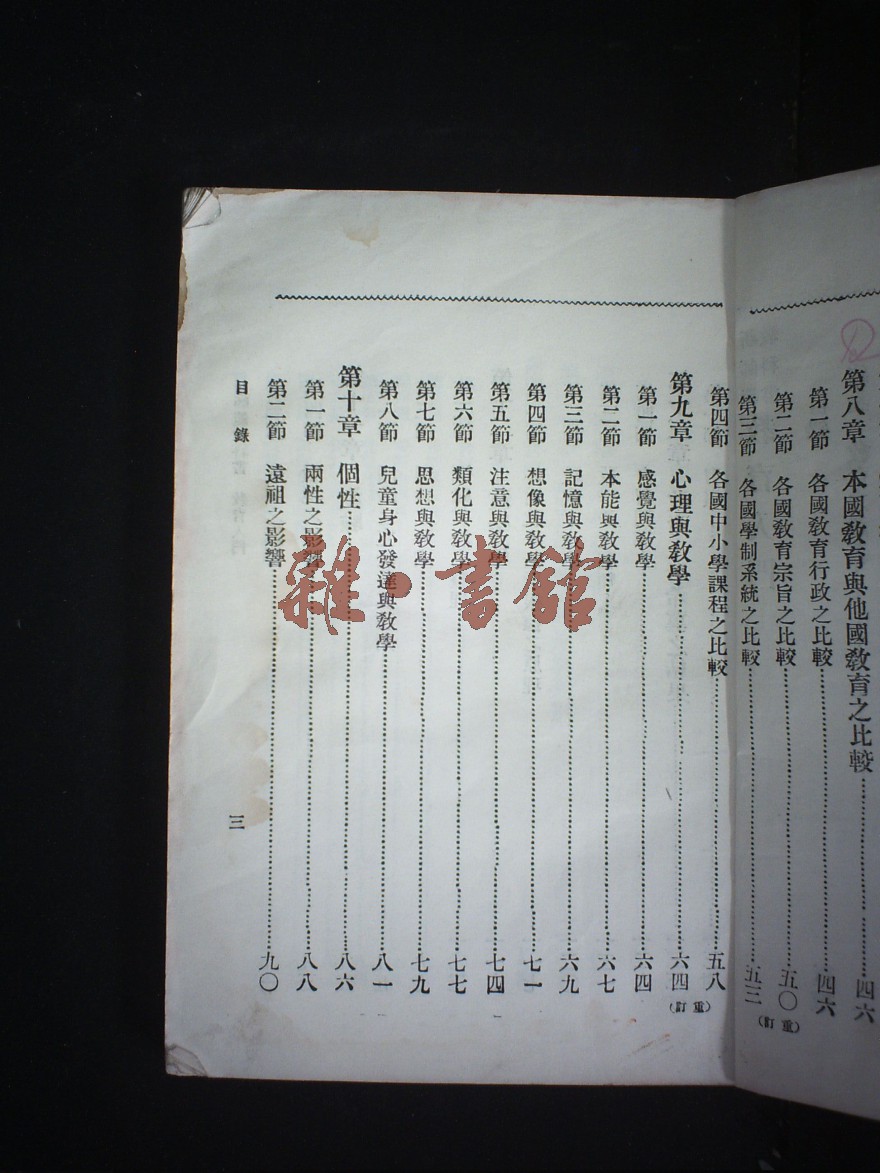 第八章 本國敎育與他國敎育之比較 四六
第一節 各國敎育行政之比較 四六
第二節 各國敎育宗旨之比較 五〇
(重訂)
第三節 各國學制系統之比較 五三
第四節 各國中小學課程之比較 五八
第九章 心理與敎學 六四
(重訂)
第一節 感覺與敎學 六四
第二節 本能與敎學 六七
第三節 記憶與敎學 六九
第四節 想像與敎學 七一
第五節 注意與敎學 七四
第六節 類化與敎學 七七
第七節 思想與敎學 七九
第八節 兒童身心發達與敎學 八一
第十章 個性 八六
第一節 兩性之影響 八八
第二節 遠祖之影響 九〇
目錄 三
雜·書館